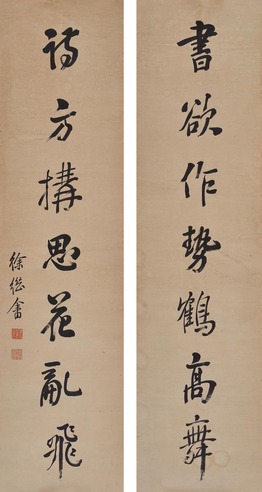 書欲作勢鶴高舞
詩方構思花亂飛
徐繼畬